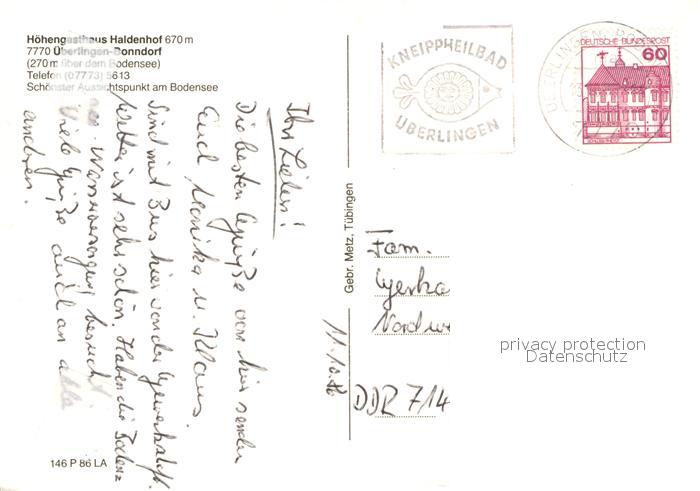 Höhengasthaus Haldenhof 670 m
7770 Überlingen-Bonndorf
(270 m über dem Bodensee)
Telefon (07773) 5613
Schönster Aussichtspunkt am Bodensee
KNEIPPHEILBAD
ÜBERLINGEN
DEUTSCHE BUNDESPOST
60
Ihr Lieben!
Die besten Grüße von hier senden
Euch Monika u. Klaus.
Sind mit Bus hier von der Gewerkschaft.
Wetter ist sehr schön. Haben die Bodensee
Wasserversorgung besucht
Viele Grüße auch an alle
anderen.
11.10.86
Gebr. Metz, Tübingen
Fam.
DDR 714
privacy protection
Datenschutz
146 P 86 LA